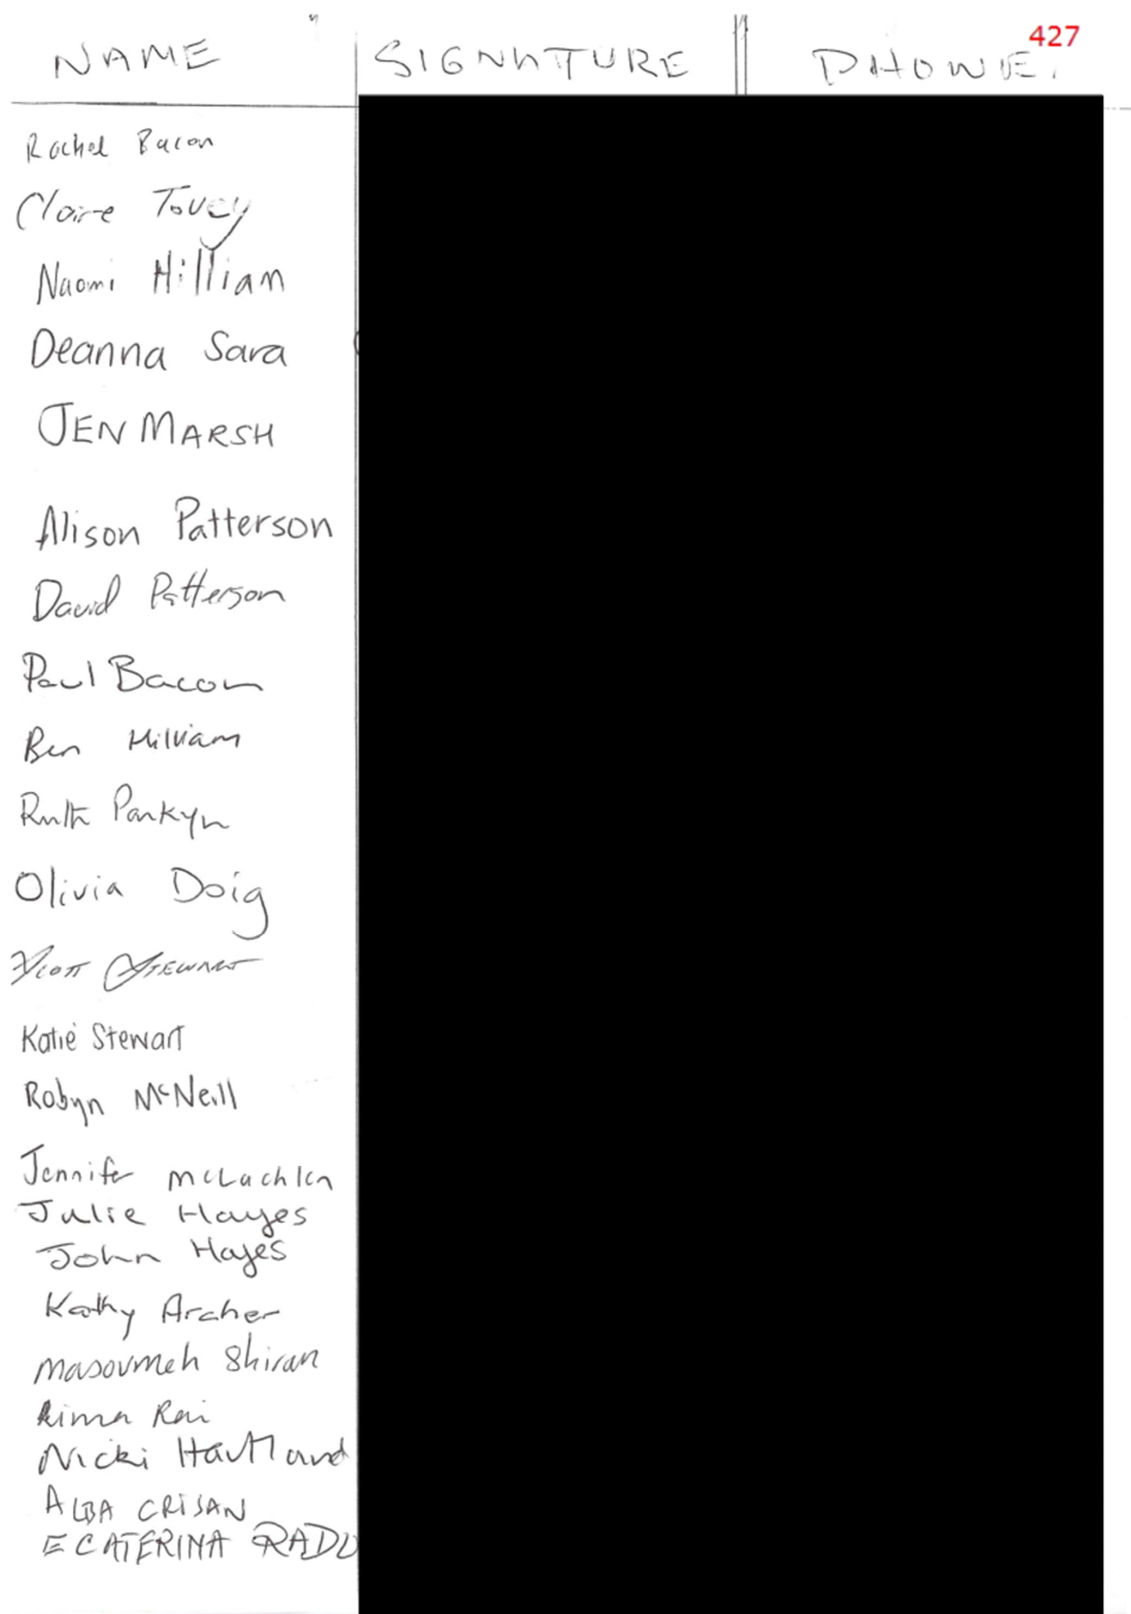 427
NAME SIGNATURE PHONE.
Rachel Bacon
Claire Tovey
Naomi Hilliam
Deanna Sara
JEN MARSH
Alison Patterson
David Patterson
Paul Bacon
Ben Hilliam
Ruth Parkyn
Olivia Doig
Scott Stewart
Katie Stewart
Robyn McNeill
Jennifer McLachlan
Julie Hayes
John Hayes
Kathy Archer
Masoumeh Shiran
Rima Rai
Nicki
ALBA CRISAN
ECATERINA RADU